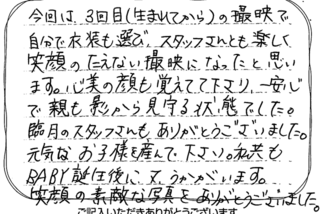 今回は、3回目(生まれてから)の撮映で、
自分で衣装も選び、スタッフさんとも楽しく
笑顔のたえない撮映になったと思い
ます。心美の顔も覚えてて下さり、一安心
で親も影から見守る状態でした。
臨月のスタッフさんも ありがとうございました。
元気なお子様を産んで下さい。私共も
BABY誕生後に又、うかがいます。
笑顔の素敵な写真をありがとうございました。
ご記入いただきありがとうございます